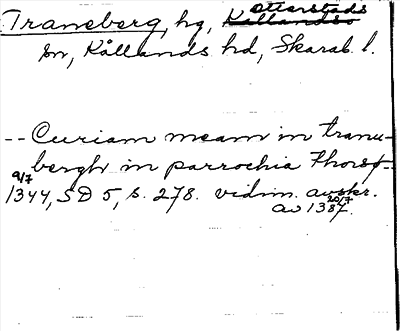 Traneberg, hg, Otterstads
sn, Kållands hd, Skarab. l.
-- Curiam meam in tranu-
bergh in parrochia Thorsf--
9/7 1344, SD 5, s. 278. vidim. avskr.
av 20/7 1387.